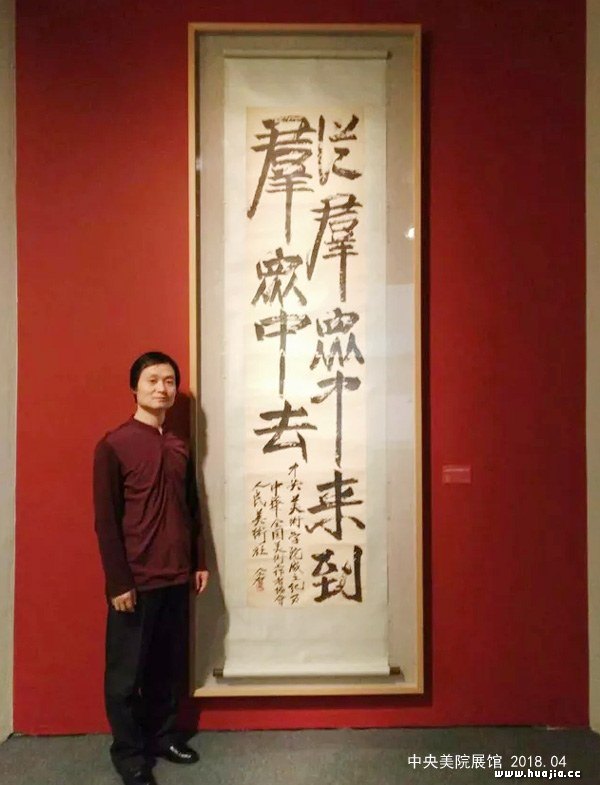 從羣眾中来到
羣眾中去
中央美術学院成立纪念
中華全國美術工作者協會
人民美術社 仝賀
中央美院展馆 2018.04
www.huajia.cc